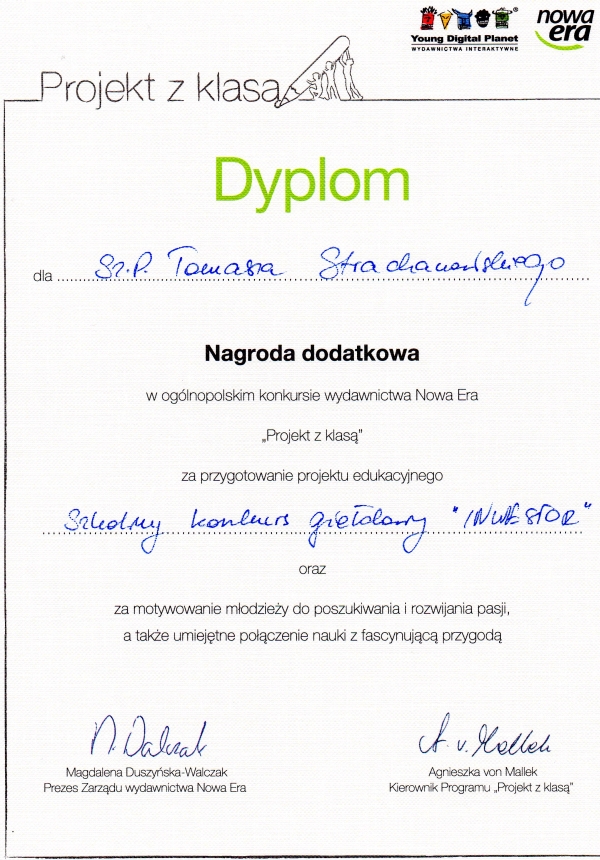 Young Digital Planet
WYDAWNICTWA INTERAKTYWNE
nowa
era
Projekt z klasą
Dyplom
dla Sz.P. Tomasza Strachanowskiego
Nagroda dodatkowa
w ogólnopolskim konkursie wydawnictwa Nowa Era
„Projekt z klasą”
za przygotowanie projektu edukacyjnego
Szkolny konkurs giełdowy "INWESTOR"
oraz
za motywowanie młodzieży do poszukiwania i rozwijania pasji,
a także umiejętne połączenie nauki z fascynującą przygodą
M. Walczak
A. v. Mallek
Magdalena Duszyńska-Walczak
Prezes Zarządu wydawnictwa Nowa Era
Agnieszka von Mallek
Kierownik Programu „Projekt z klasą”